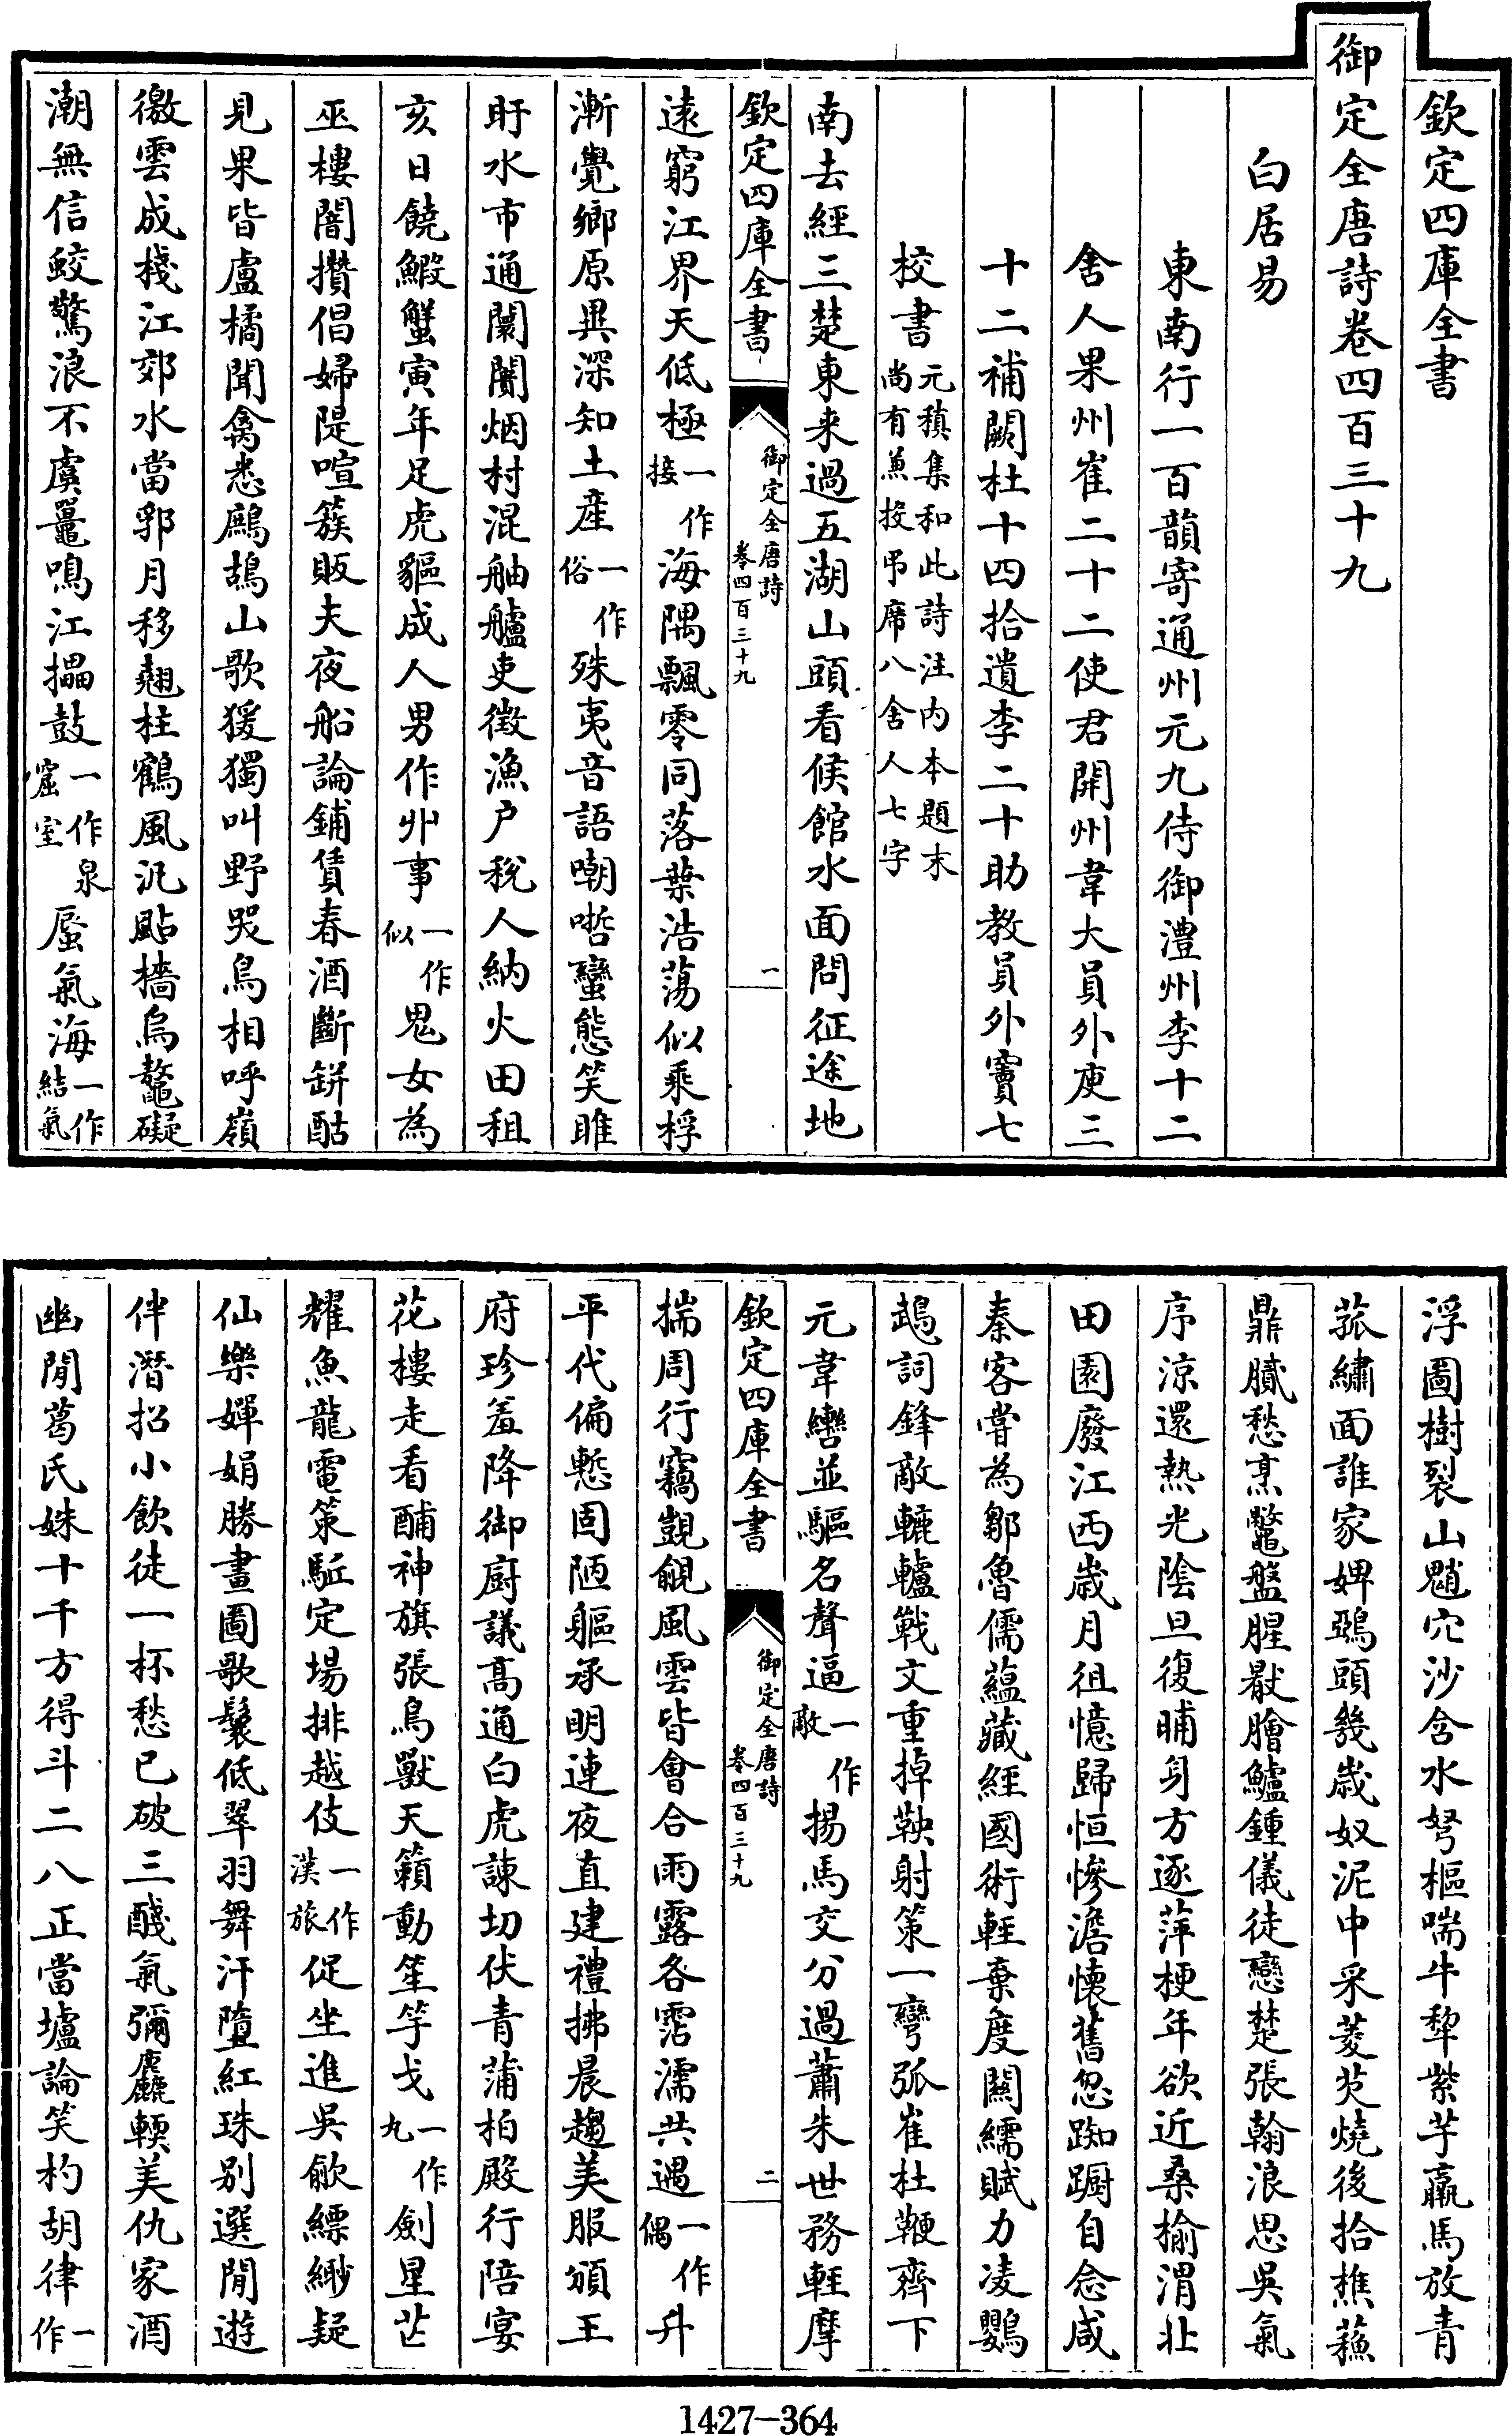 欽定四庫全書
御定全唐詩卷四百三十九
白居易
東南行一百韻寄通州元九侍御澧州李十二
舍人果州崔二十二使君開州韋大員外庾三
十二補闕杜十四拾遺李二十助教員外竇七
校書元稹集和此詩注内本題末尚有兼投弔席八舍人七字
南去經三楚東来過五湖山頭看候館水面問征途地
遠窮江界天低極一作接海隅飄零同落葉浩蕩似乘桴
漸覺鄉原異深知土産一作俗殊夷音語嘲哳蠻態笑睢
盱水市通闤闠烟村混舳艫吏徴漁户税人納火田租
亥日饒鰕蟹寅年足虎貙成人男作丱事一作似鬼女為
巫樓闇攢倡婦隄喧簇販夫夜船論鋪賃春酒斷缾酤
見果皆盧橘聞禽悉鷓鴣山歌猨獨叫野哭鳥相呼嶺
徼雲成棧江郊水當郛月移翹柱鶴風汎颭檣烏鼇礙
潮無信鮫驚浪不虞鼉鳴江擂鼓一作泉窟室蜃氣海一作結氣
欽定四庫全書
御定全唐詩
卷四百三十九
一
浮圖樹裂山魈穴沙含水弩樞喘牛犂紫芋羸馬放青
菰繡面誰家婢鵶頭幾歲奴泥中采菱芡燒後拾樵蘇
鼎膩愁烹鼈盤腥厭膾鱸鍾儀徒戀楚張翰浪思吳氣
序涼還熱光陰旦復晡身方逐萍梗年欲近桑榆渭北
田園廢江西歲月徂憶歸恒慘澹懷舊忽踟蹰自念咸
秦客嘗為鄒魯儒蘊藏經國術輕棄度關繻賦力凌鸚
鵡詞鋒敵轆轤戰文重掉鞅射策一彎弧崔杜鞭齊下
元韋轡並驅名聲逼一作敵揚馬交分過蕭朱世務輕摩
揣周行竊覬覦風雲皆會合雨露各霑濡共遇一作偶升
平代偏慙固陋軀承明連夜直建禮拂晨趨美服頒王
府珍羞降御廚議高通白虎諫切伏青蒲柏殿行陪宴
花樓走看酺神旗張鳥獸天籟動笙竽戈一作九劍星芒
耀魚龍電策駈定場排越伎一作漢旅促坐進吳歈縹緲疑
仙樂嬋娟勝畫圖歌鬟低翠羽舞汗墮紅珠别選閒遊
伴潛招小飲徒一杯愁已破三醆氣彌麤輭美仇家酒
幽閒葛氏姝十千方得斗二八正當壚論笑杓胡律一作
欽定四庫全書
御定全唐詩
卷四百三十九
二
1427-364